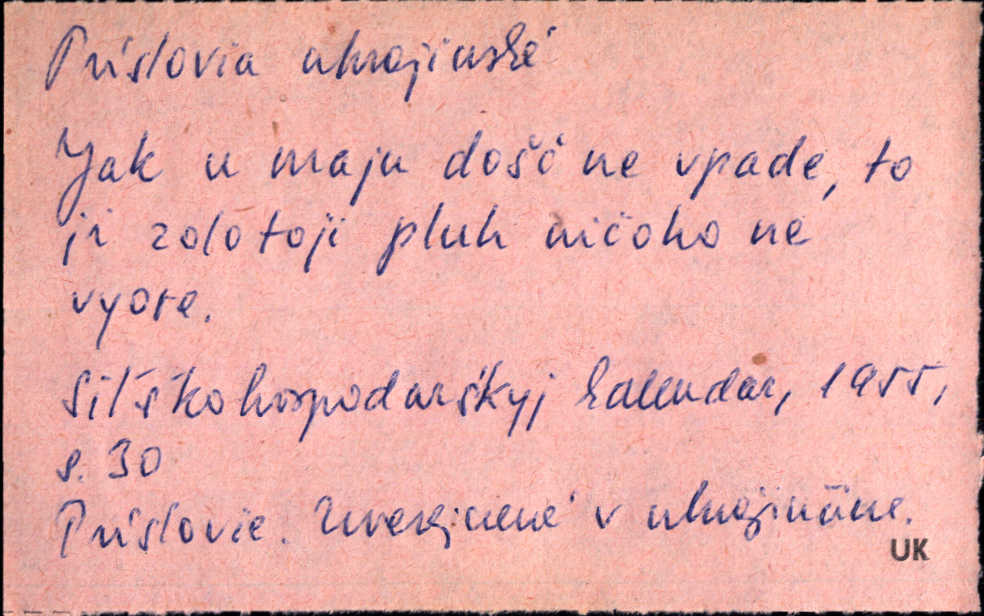 Príslovia ukrajinské
Jak u maju došč ne vpade, to
ji zolotoji pluh ničoho ne
vyore.
Siľśkohospodarśkyj kalendar, 1955,
s. 30
Príslovie. Uverejnené v ukrajinčine.
UK